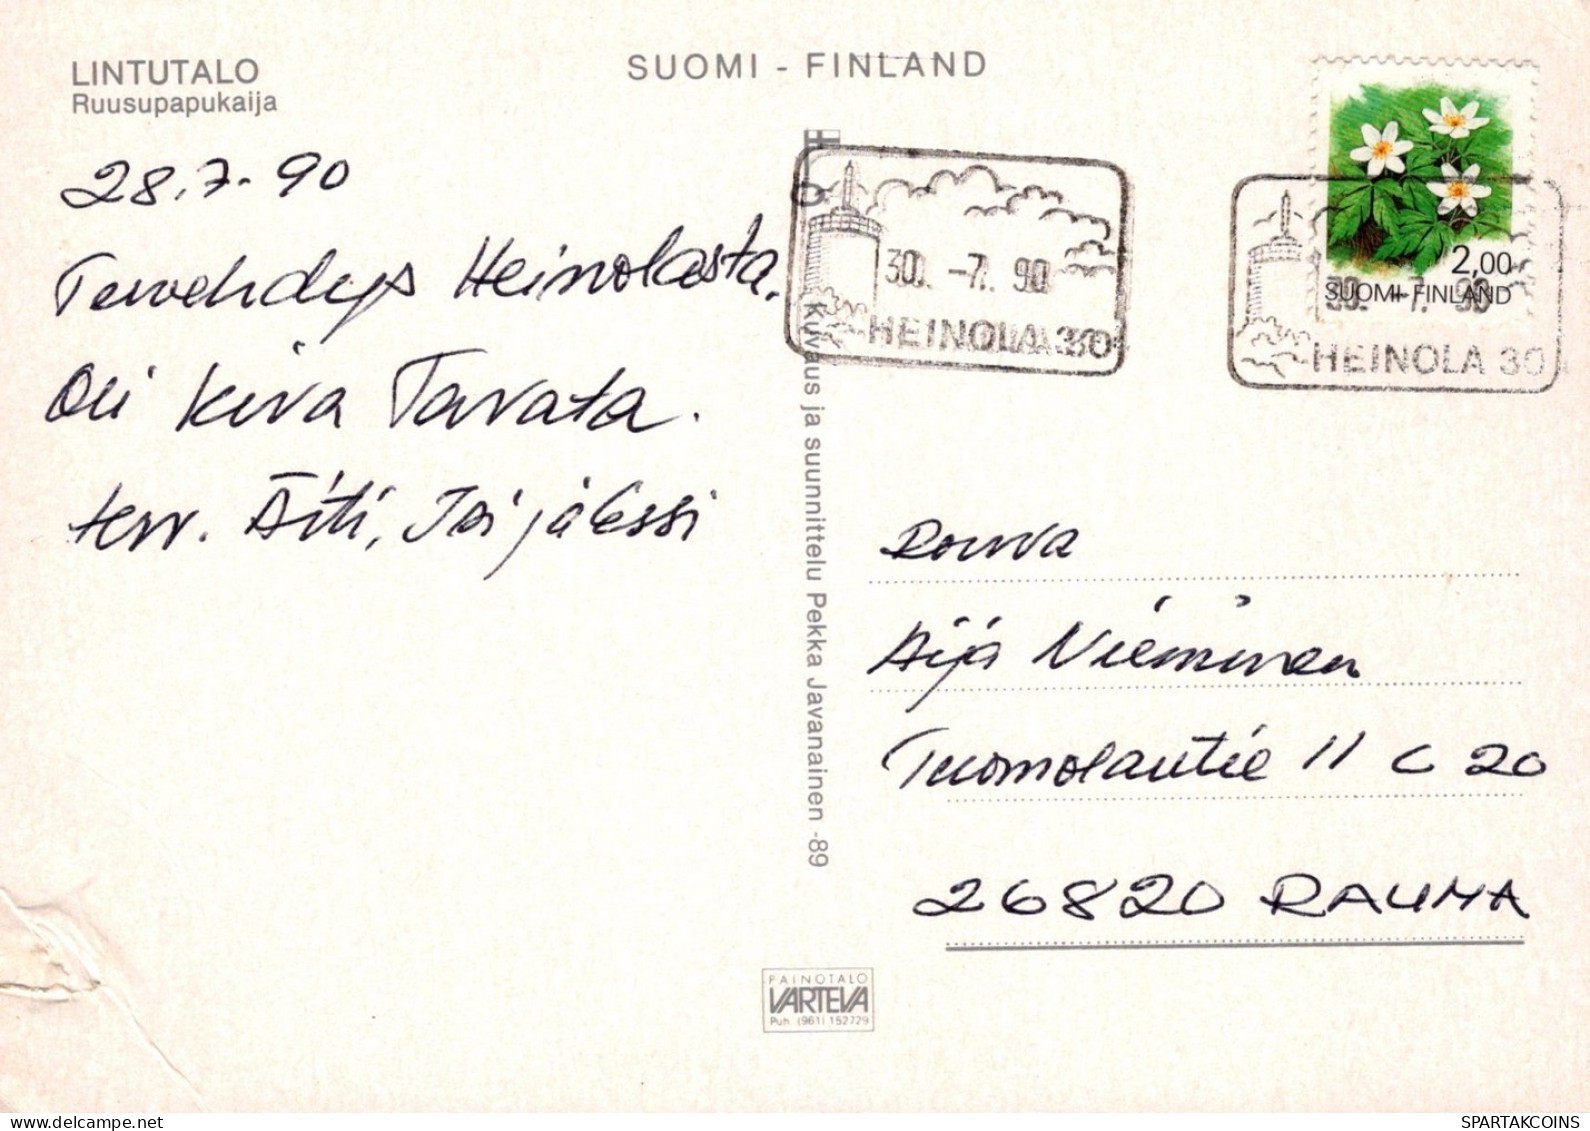 LINTUTALO
Ruusupapukaija
SUOMI - FINLAND
28.7.90
Tervehdys Heinolasta.
Oli kiva Tavata.
terv. Äiti, Isi ja
2,00
SUOMI-FINLAND
30. -7. 90
HEINOLA 30
30. -7. 90
HEINOLA 30
Kuvaus ja suunnittelu Pekka Javanainen -89
Rouva
Aija Nieminen
Tuomolantie 11 C 20
26820 RAUMA
PAINOTALO
VARTEVA
Puh. (961) 152729
SPARTAKCOINS
delcampe.net